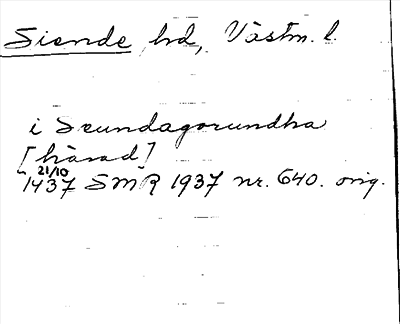 Siende hd, Västm. l.
i Seundagorundha
[härad]
21/10
1437 SMR 1937 nr. 640. orig.